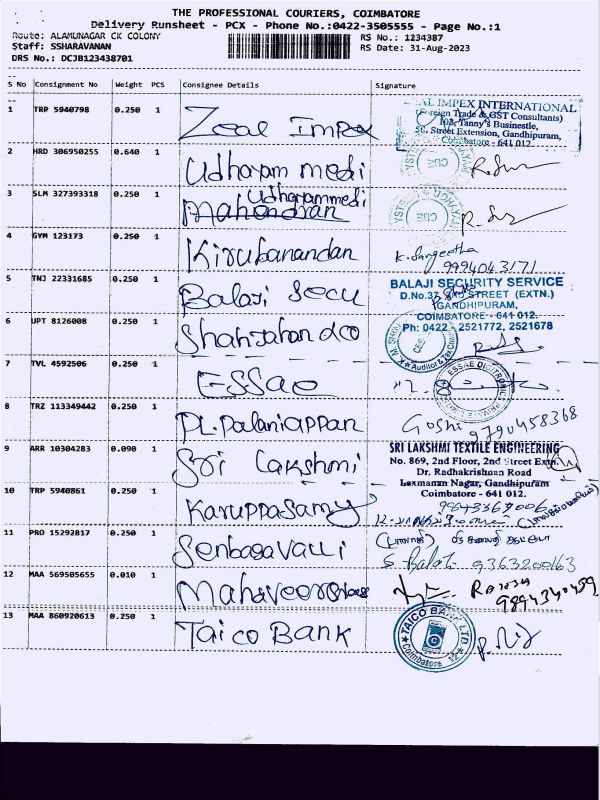 THE PROFESSIONAL COURIERS, COIMBATORE
Delivery Runsheet - PCX - Phone No.:0422-3505555 - Page No.:1
Route: ALAMUNAGAR CK COLONY
RS No.: 1234387
Staff: SSHARAVANAN
RS Date: 31-Aug-2023
DRS No.: DCJB123438701
S No Consignment No Weight PCS Consignee Details Signature
1 TRP 5940798 0.250 1 Zeal Impex
AL IMPEX INTERNATIONAL
(Foreign Trade & GST Consultants)
103, Tanny's Businestle,
Street Extension, Gandhipuram,
Coimbatore - 641 012.
2 HRD 306950255 0.640 1 Udhayam medi
3 SLM 327393318 0.250 1 Udhayammedi
Mahendran
4 GYM 123173 0.250 1 Kirubanandan
K. Sangeetha
9994043171
5 TNJ 22331685 0.250 1 Balaji Secu
BALAJI SECURITY SERVICE
D.No.37, STREET (EXTN.)
GANDHIPURAM,
COIMBATORE - 641 012.
Ph: 0422 - 2521772, 2521678
6 UPT 8126008 0.250 1 Shahjahan &co
Auditor & Tax
7 TVL 4592506 0.250 1 ESSae
ESSAE DIGITRONICS
8 TRZ 113349442 0.250 1 PL.Palaniappan
Goshi
9790458368
9 ARR 10304283 0.090 1 Sri Lakshmi
SRI LAKSHMI TEXTILE ENGINEERING
No. 869, 2nd Floor, 2nd Street Extn.
Dr. Radhakrishnan Road
Laxmanan Nagar, Gandhipuram
Coimbatore - 641 012.
10 TRP 5940861 0.250 1 Karuppasamy
11 PRO 15292817 0.250 1 Senbagavalli
S. Balaji 9363200163
12 MAA 569505655 0.010 1 Mahaveer
9894340459
13 MAA 860920613 0.250 1 Taico Bank
TAICO BANK LTD
Coimbatore 12